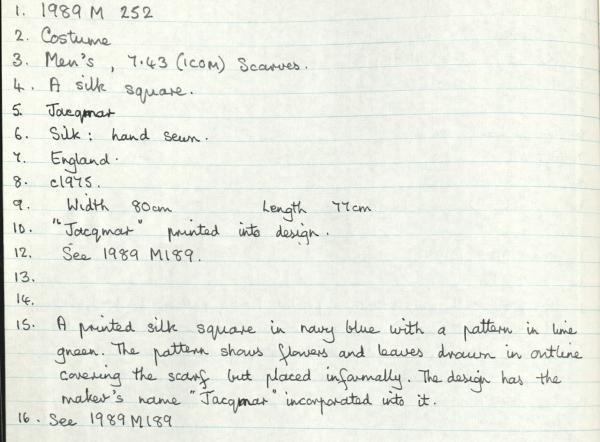 1. 1989 M 252
2. Costume
3. Men's, 7.43 (ICOM) Scarves.
4. A silk square.
5. Jacqmar
6. Silk: hand sewn.
7. England.
8. c1975.
9. Width 80cm Length 77cm
10. "Jacqmar" printed into design.
12. See 1989 M189.
13.
14.
15. A printed silk square in navy blue with a pattern in lime
green. The pattern shows flowers and leaves drawn in outline
covering the scarf but placed informally. The design has the
maker's name "Jacqmar" incorporated into it.
16. See 1989M189